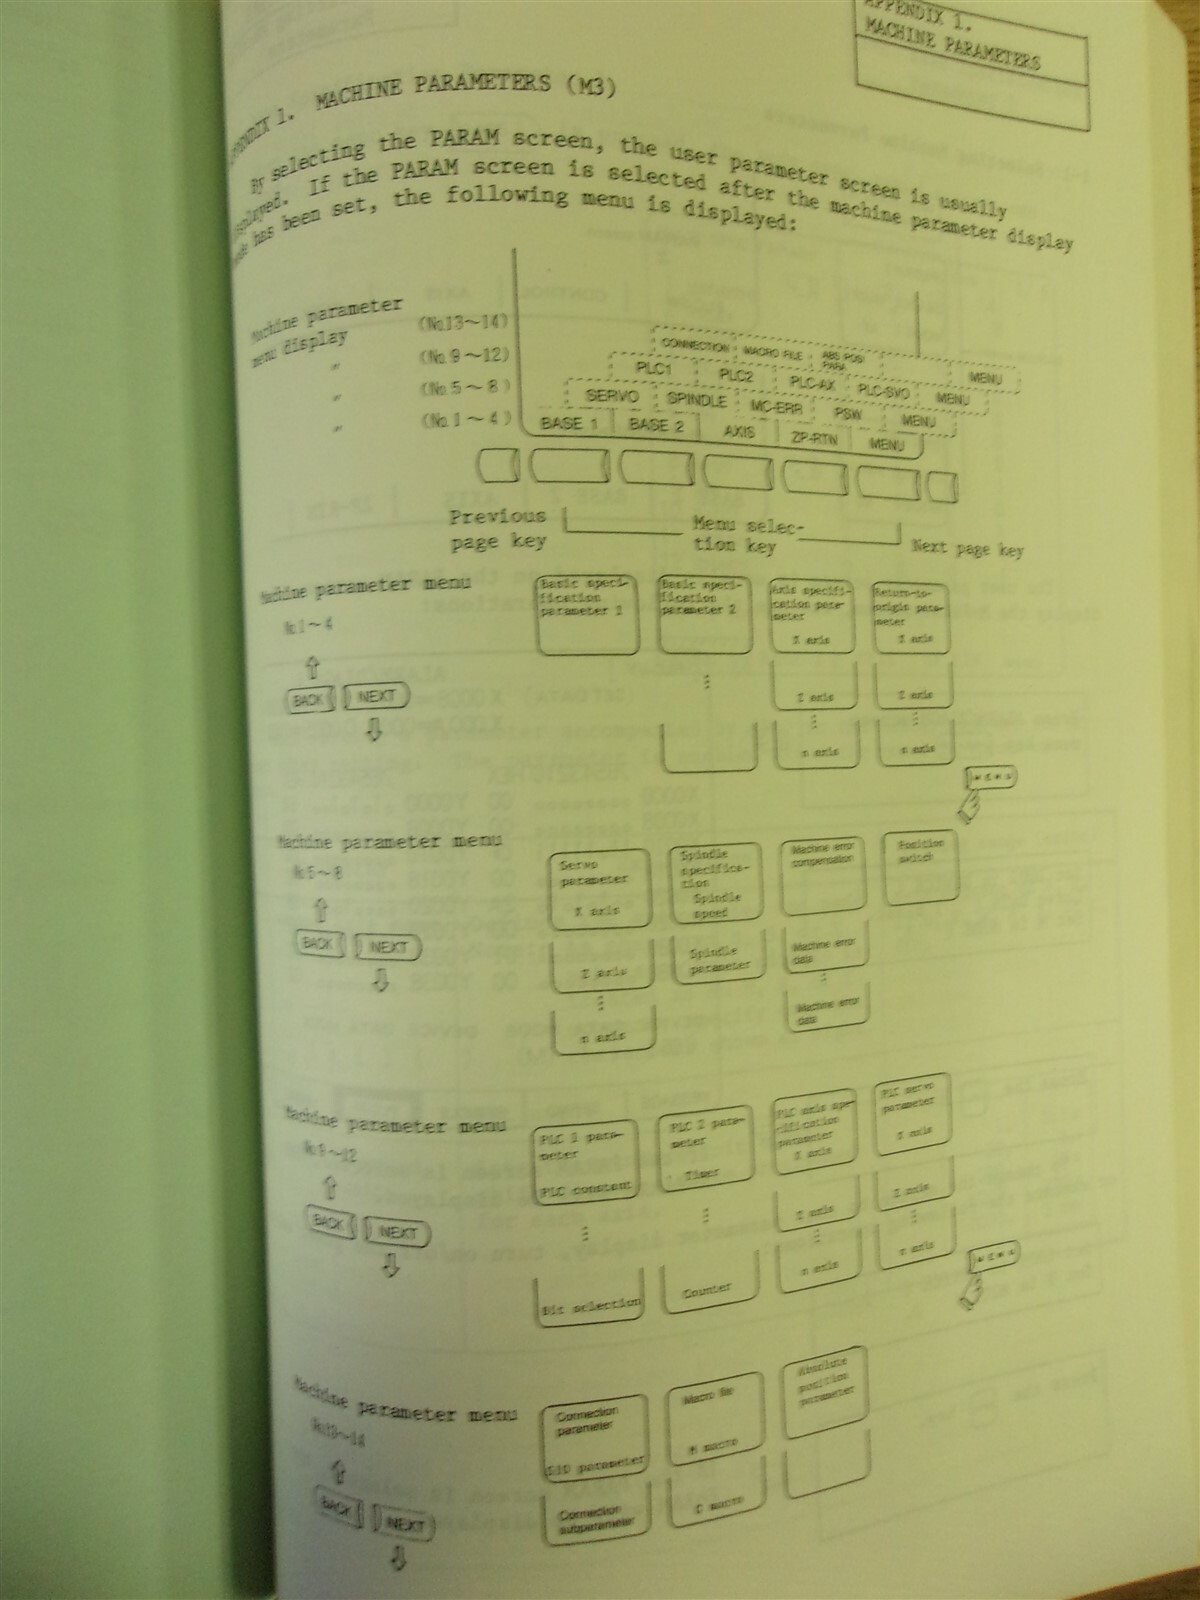 APPENDIX 1.
MACHINE PARAMETERS
APPENDIX 1. MACHINE PARAMETERS (M3)
By selecting the PARAM screen, the user parameter screen is usually
displayed. If the PARAM screen is selected after the machine parameter display
mode has been set, the following menu is displayed:
Machine parameter
menu display
(No.13~14)
CONNECTION MACRO FILE ABS POSI PARA MENU
〃 (No.9~12) PLC1 PLC2 PLC-AX PLC-SVO MENU
〃 (No.5~8) SERVO SPINDLE MC-ERR PSW MENU
〃 (No.1~4) BASE 1 BASE 2 AXIS ZP-RTN MENU
Previous
page key
Menu selec-
tion key
Next page key
Machine parameter menu
No.1~4
BACK NEXT
Basic speci-
fication
parameter 1
Basic speci-
fication
parameter 2
Axis specifi-
cation para-
meter
X axis
Z axis
n axis
Return-to-
origin para-
meter
X axis
Z axis
n axis
MENU
Machine parameter menu
No.5~8
BACK NEXT
Servo
parameter
X axis
Z axis
n axis
Spindle
specifica-
tion
Spindle
speed
Spindle
parameter
Machine error
compensation
Machine error
data
Machine error
data
Position
switch
Machine parameter menu
No.9~12
BACK NEXT
PLC 1 para-
meter
PLC constant
Bit selection
PLC 2 para-
meter
Timer
Counter
PLC axis spe-
cification
parameter
X axis
Z axis
n axis
PLC servo
parameter
X axis
Z axis
n axis
MENU
Machine parameter menu
No.13~14
BACK NEXT
Connection
parameter
SIO parameter
Connection
subparameter
Macro file
M macro
C macro
Absolute
position
parameter